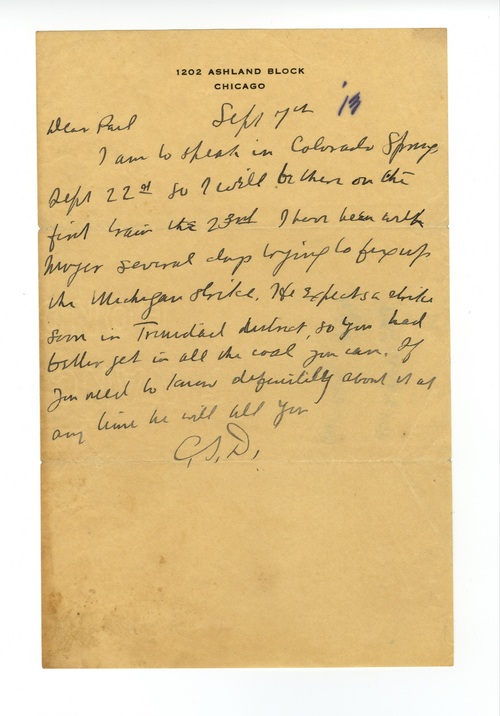 1202 ASHLAND BLOCK
CHICAGO
Sept 7th '13
Dear Paul
I am to speak in Colorado Springs
Sept 22nd so I will be there on the
first train the 23rd I have been with
Moyer several days trying to fix up
the Michigan strike. He expects a strike
soon in Trinidad district, so you had
better get in all the coal you can. If
you need to know definitilly about it at
any time he will tell you
C.S.D.